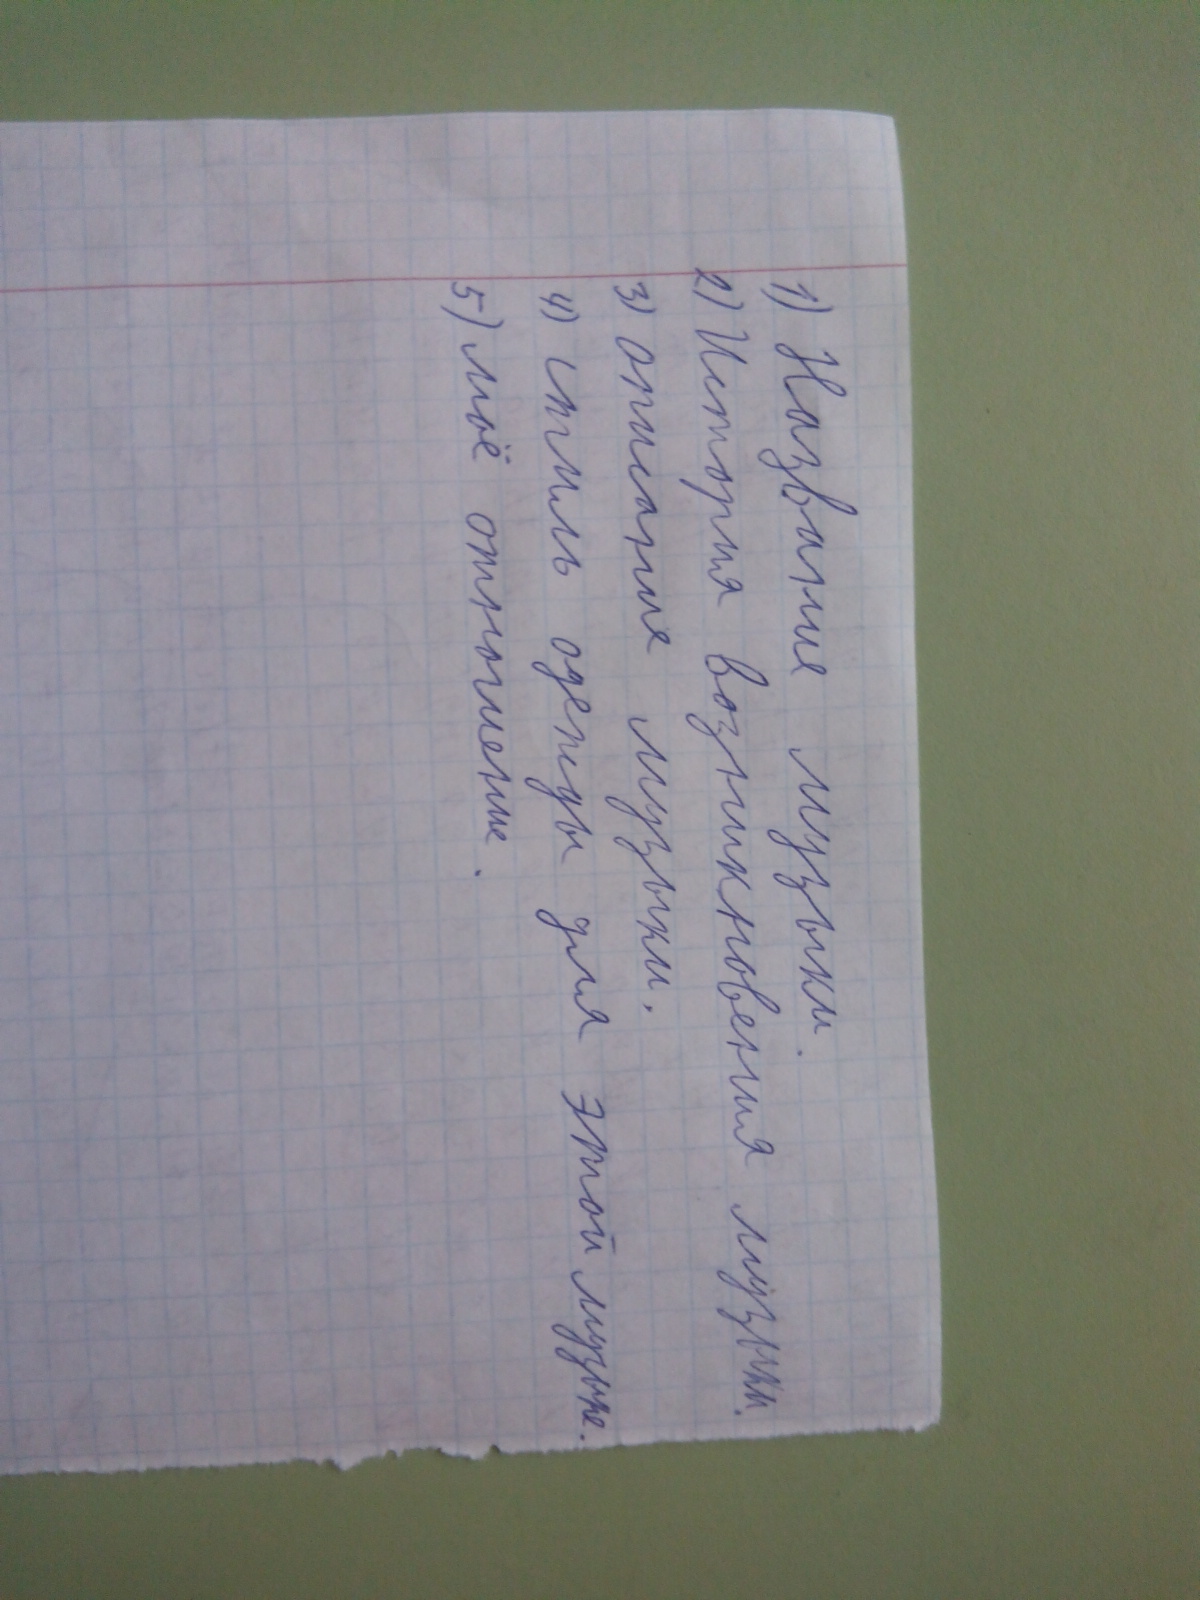 1) Название музыки.
2) История возникновения музыки.
3) описание музыки.
4) стиль одежды для этой музыке.
5) моё отношение.